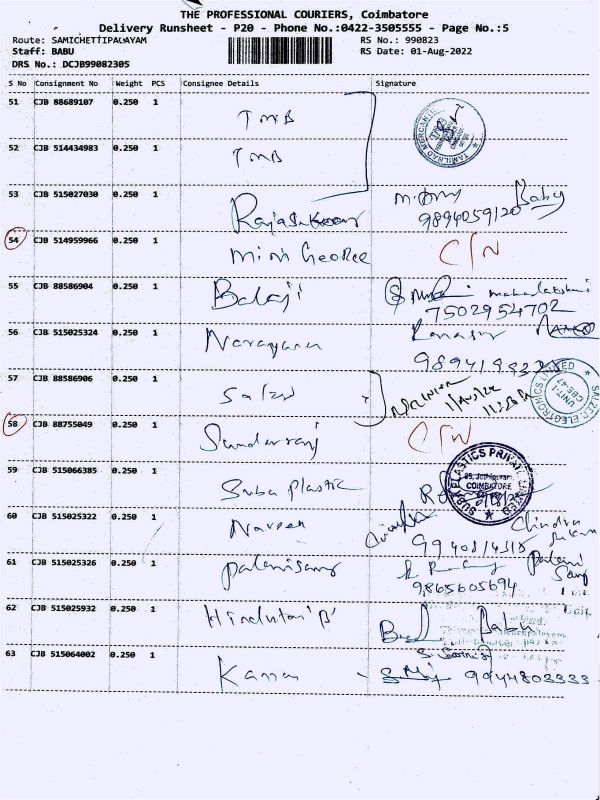 THE PROFESSIONAL COURIERS, Coimbatore
Delivery Runsheet - P20 - Phone No.:0422-3505555 - Page No.:5
Route: SAMICHETTIPALAYAM RS No.: 990823
Staff: BABU RS Date: 01-Aug-2022
DRS No.: DCJB99082305
S No Consignment No Weight PCS Consignee Details Signature
51 CJB 88689107 0.250 1 TMB
52 CJB 514434983 0.250 1 TMB
53 CJB 515027030 0.250 1 Rajasekaran Baby
9894059120
54 CJB 514959966 0.250 1 Mini George C/N
55 CJB 88586904 0.250 1 Balaji mahalakshmi
7502954702
56 CJB 515025324 0.250 1 Narayana
57 CJB 88586906 0.250 1 Salzer
SALZER ELECTRONICS LIMITED
UNIT-
CBE-47
58 CJB 88755049 0.250 1 Sundarraj C/N
59 CJB 515066385 0.250 1 Suba plastic
SUBA PLASTICS PRIVATE LIMITED
COIMBATORE
60 CJB 515025322 0.250 1 Naveen Chindra
61 CJB 515025326 0.250 1 Palanisamy Palani
Samy
9865605694
62 CJB 515025932 0.250 1 Hindustan 'P' Babu
63 CJB 515064002 0.250 1 Kannan 9944803333